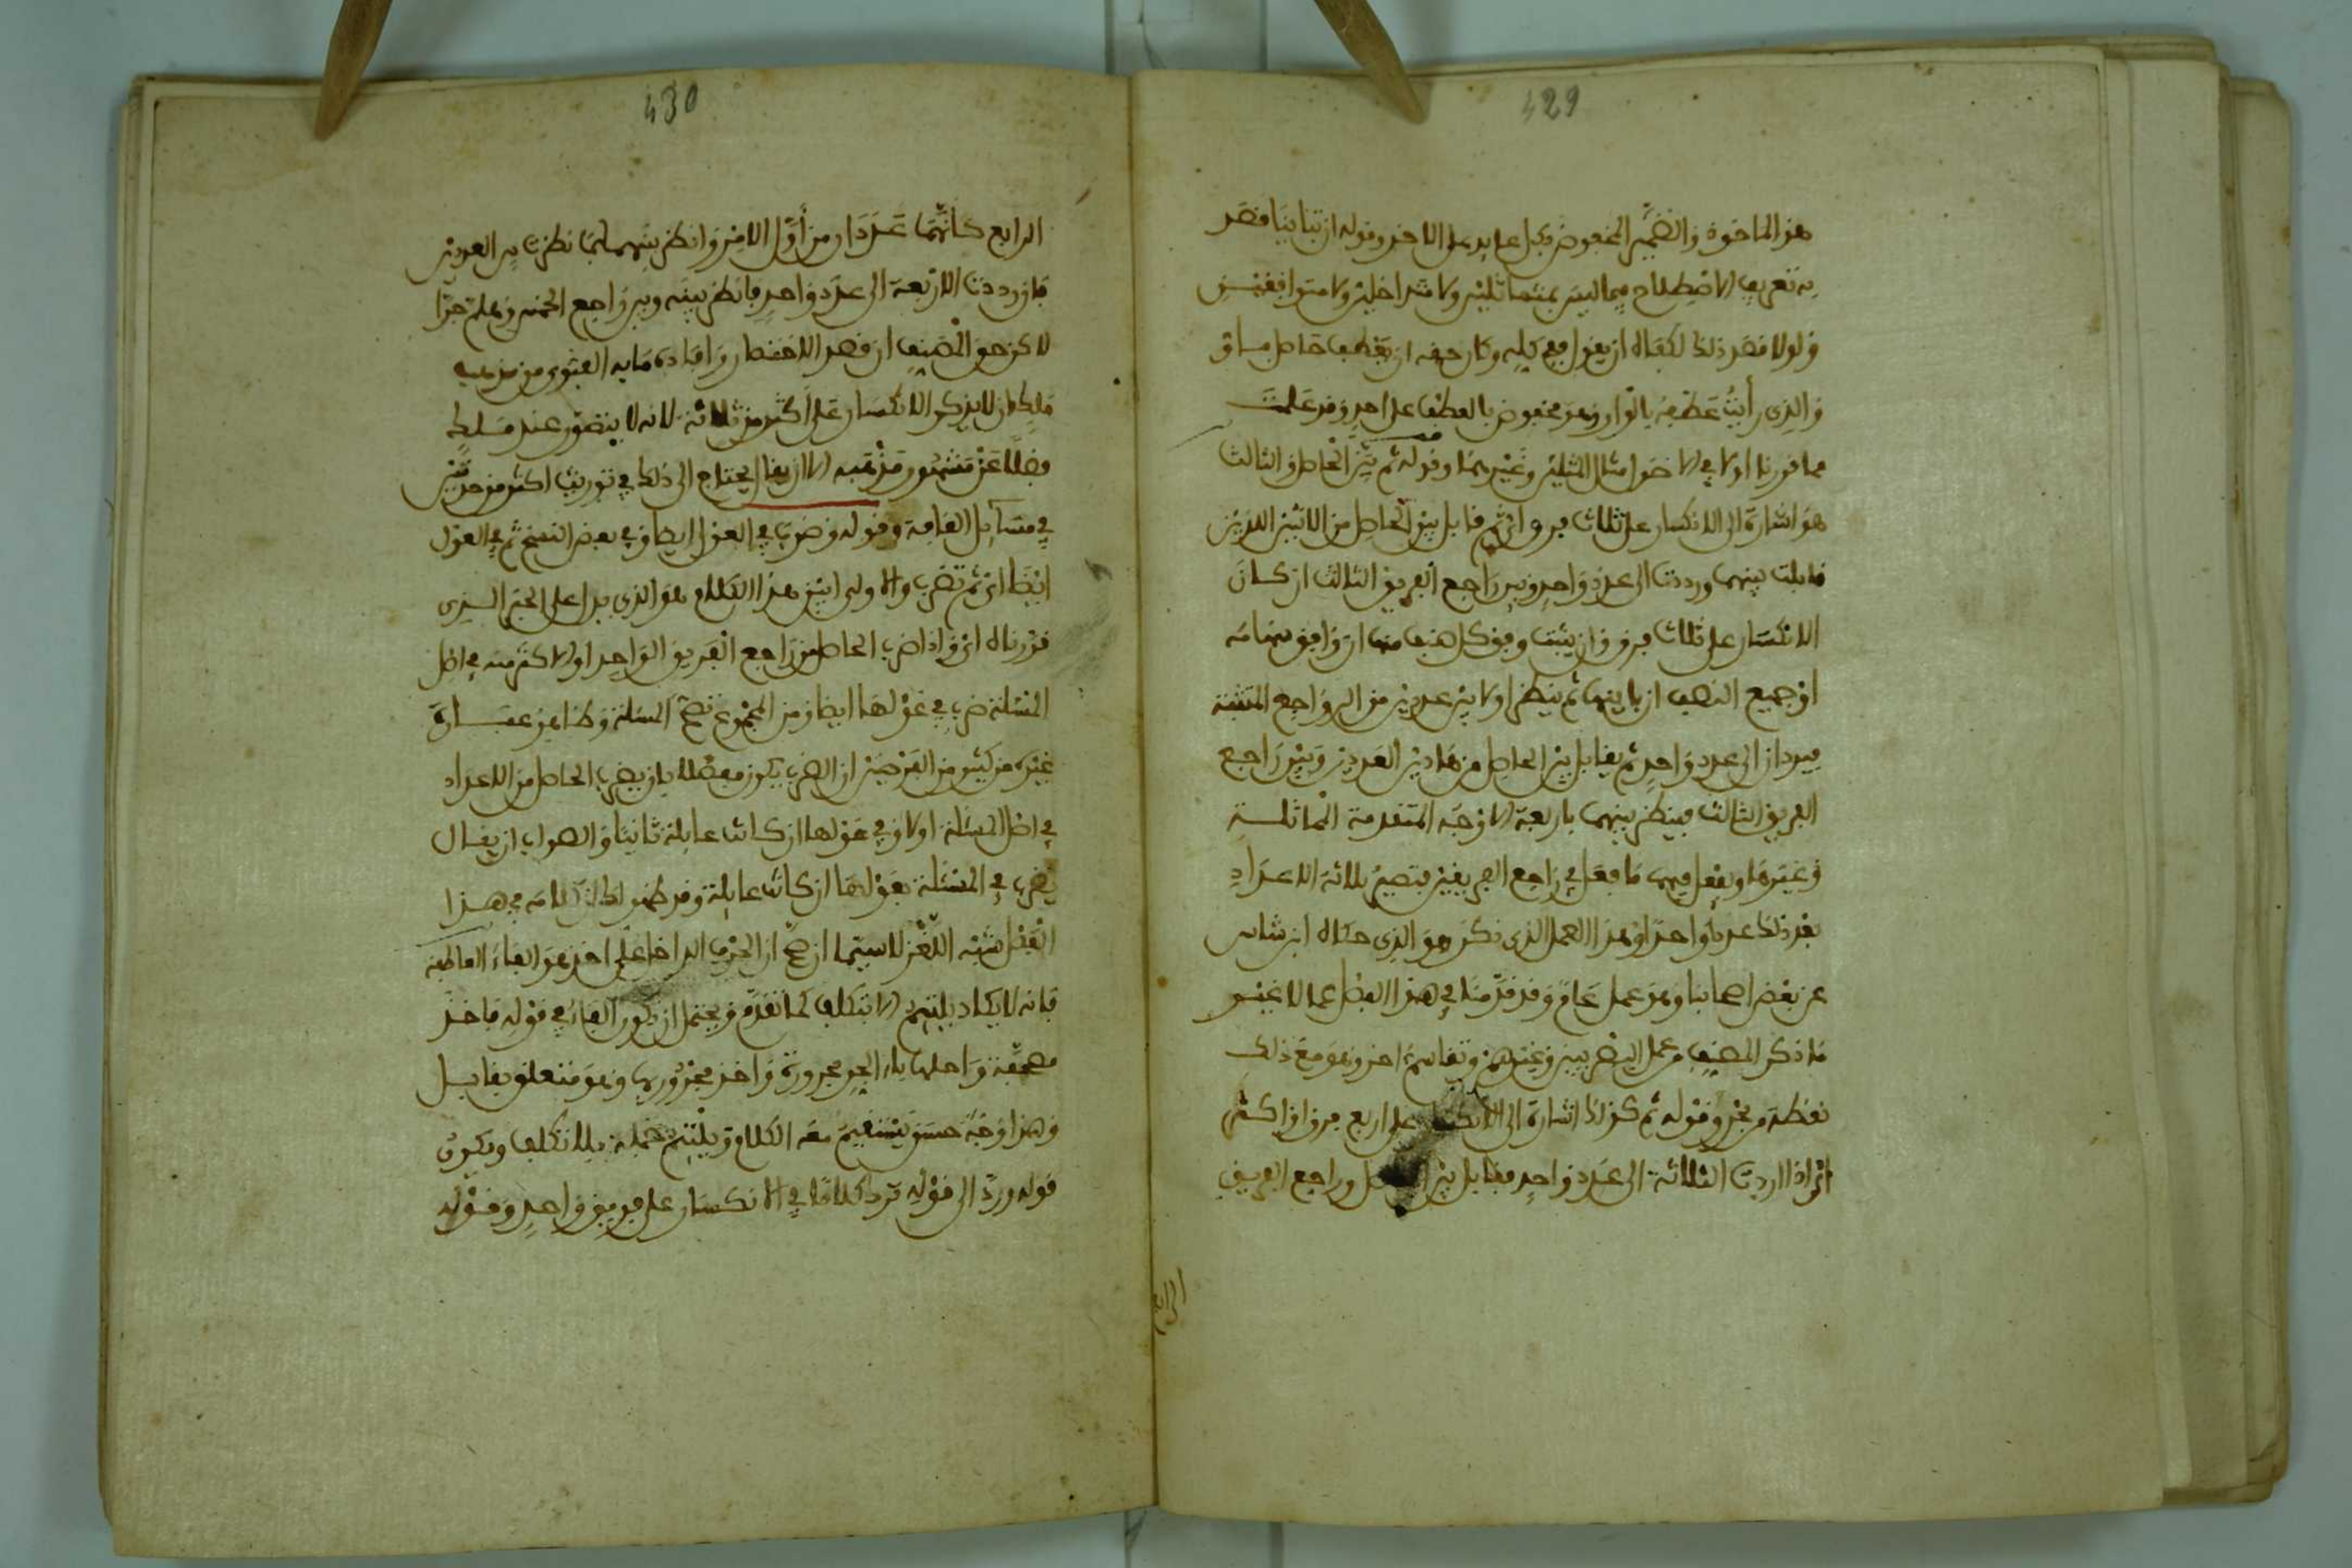 429
هو الماخوذ والضمير المخفوض بكل عايد على الاخذ وقوله ان تباينا قصد
به تعريف الاصطلاح فيما ليس بمتماثلين ولا متداخلين ولا متوافقين
ولولا قصد ذلك لكفاه ان يقول ففي كله وكان حقه ان يعطف حاصل بباو
والذي رأيت عطفه بالواو وهو مخفوض بالعطف على احد وقد علمت
مما قررنا اولا في الاخذ امثال المثلين وغيرهما وقوله ثم بين الحاصل والثالث
هو اشارة الى الانكسار على ثلاث فرق اي ثم قابل بين الحاصل من الاثنين اللذين
قابلت بينهما ورددت الى عدد واحد وبين راجع الفريق الثالث ان كان
الانكسار على ثلاث فرق وان يثبت وفق كل صنف منها ان وافق سهامه
او جميع الصنف ان باينها ثم ينظر اولا بين عددين من الرواجع المثبتة
فيردان الى عدد واحد ثم يقابل بين الحاصل من هاذين العددين وبين راجع
الفريق الثالث فينظر بينهما باربعة الاوجه المتقدمة المماثلة
وغيرها ويفعل فيهما ما فعل في راجع الفريقين فتصير ثلاثة الاعداد
بعد ذلك عددا واحدا وهذا العمل الذي ذكر هو الذي حكاه ابن شاس
عن بعض اصحابنا وهو عمل عام وقد قدمنا في هذا الفصل عملا غير
ما ذكر المصنف وعمل البصريين وغيرهم وتقاسم اخر وهو مع ذلك
نقطة من بحر وقوله ثم كذلك اشارة الى الانكسار على اربع فرق او اكثر
اي اذا رددت الثلاثة الى عدد واحد فقابل بين الحاصل وراجع الفريق
الرابع
430
الرابع كانهما عددان من أول الامر وانظر بينهما كما نظرت بين العددين
فان رددت الاربعة الى عدد واحد فانظر بينه وبين راجع الخمس وهلم جرا
لاكن حق المصنف ان قصد الاختصار وافادة ما به الفتوى من مذهب
ملك ان لا يذكر الانكسار على أكثر من ثلاثة لانه لا يتصور عند ملك
فضلا عن مشهور مذهبه الا ان يقال يحتاج الى ذلك في توريث اكثر من جدتين
في مسايل القافة وقوله وضرب في العول ايضا وفي بعض النسخ ثم في العول
ايضا اي ثم تضرب والاولى ابين هذا الكلام هو الذي يدل على الخبر الذي
قدرناه اي واذا ضرب الحاصل من راجع الفريق الواحد او الاكثر منه في اصل
المسئلة ضرب في عولها ايضا ومن المجموع تصح المسئلة وظاهر عبارة
غيره من كثير من الفرضيين ان الضرب يكون مفصلا بان يضرب الحاصل من الاعداد
في اصل المسئلة اولا وفي عولها ان كانت عايلة ثانيا والصواب ان يقال
يضرب في المسئلة بعولها ان كانت عايلة وقد ظهر لك ان كلامه في هذا
الفصل شبه اللغز لاسيما ان صح ان الحرف الداخل على اخذ هو الفاء العاطفة
فانه لا يكاد يلتئم الا بتكلف كما تقدم ويحتمل ان تكون الفاء في قوله فاخذ
مصحفة واصلها باء الجر مجرورة واخذ مجرورها وهو متعلق بقابل
وهذا وجه حسن يستقيم معه الكلام ويلتئم جمله بلا تكلف ويكون
قوله ورد الى قوله ترد كلاما في الانكسار على فريق واحد وقوله